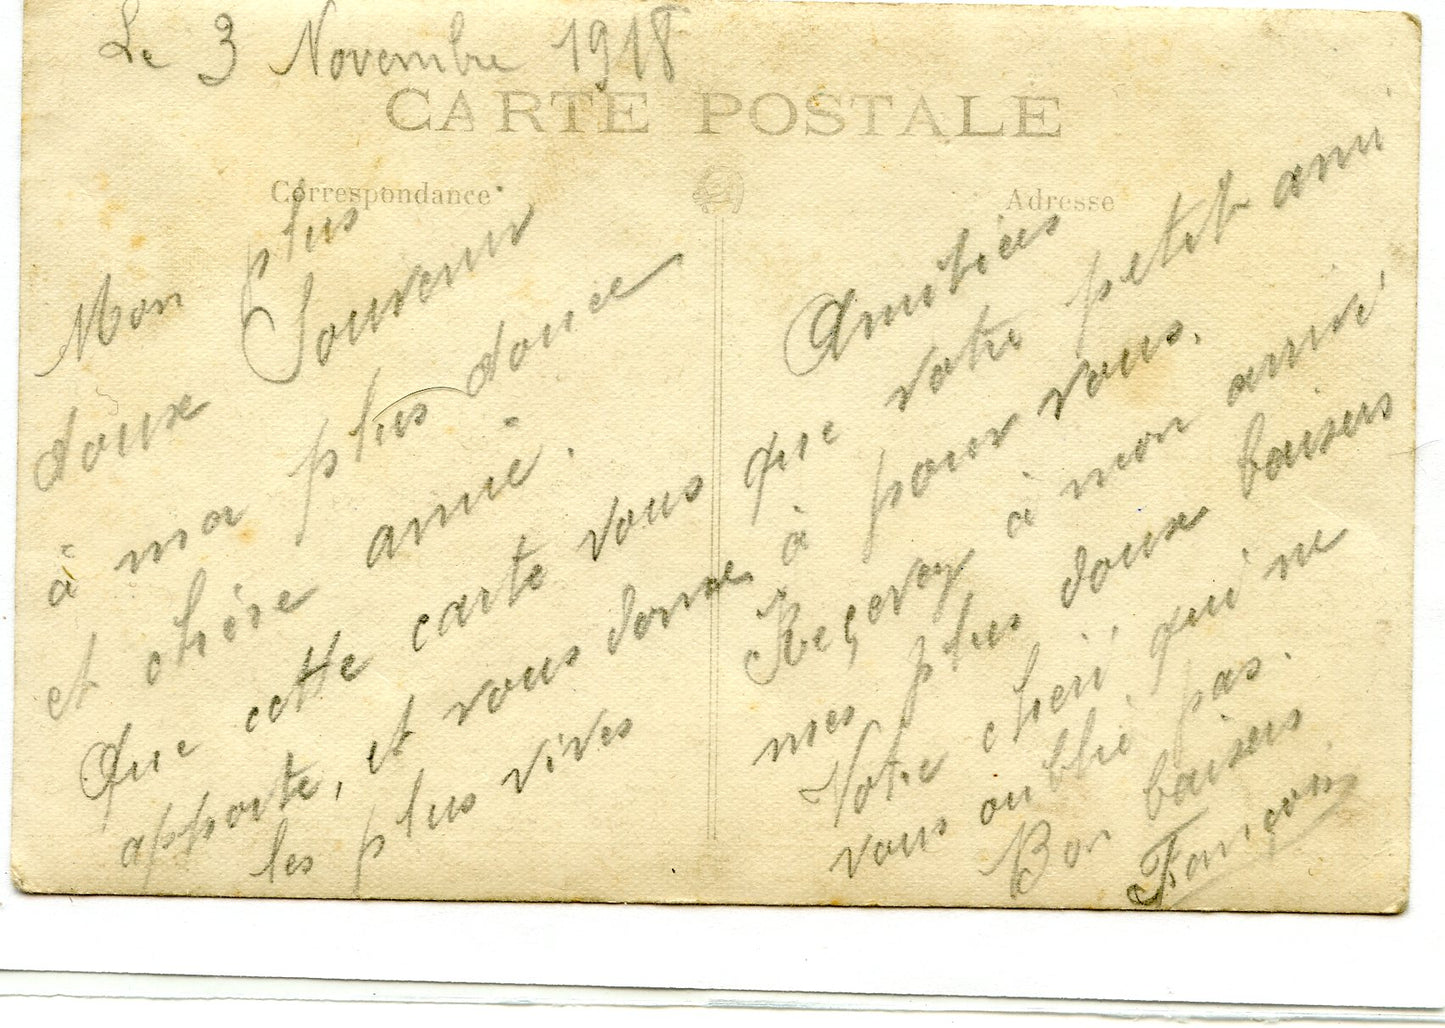 Le 3 Novembre 1918
CARTE POSTALE
Correspondance
Adresse
Mon plus
doux Souvenir
à ma plus douce
et chère amie.
Que cette carte vous
apporte, et vous donne
les plus vives
Amitiées
que votre petit ami
à pour vous.
Reçevez à mon amie
mes plus doux baisers
Votre cheri qui ne
vous oublie pas.
Bon baisers
Françcois